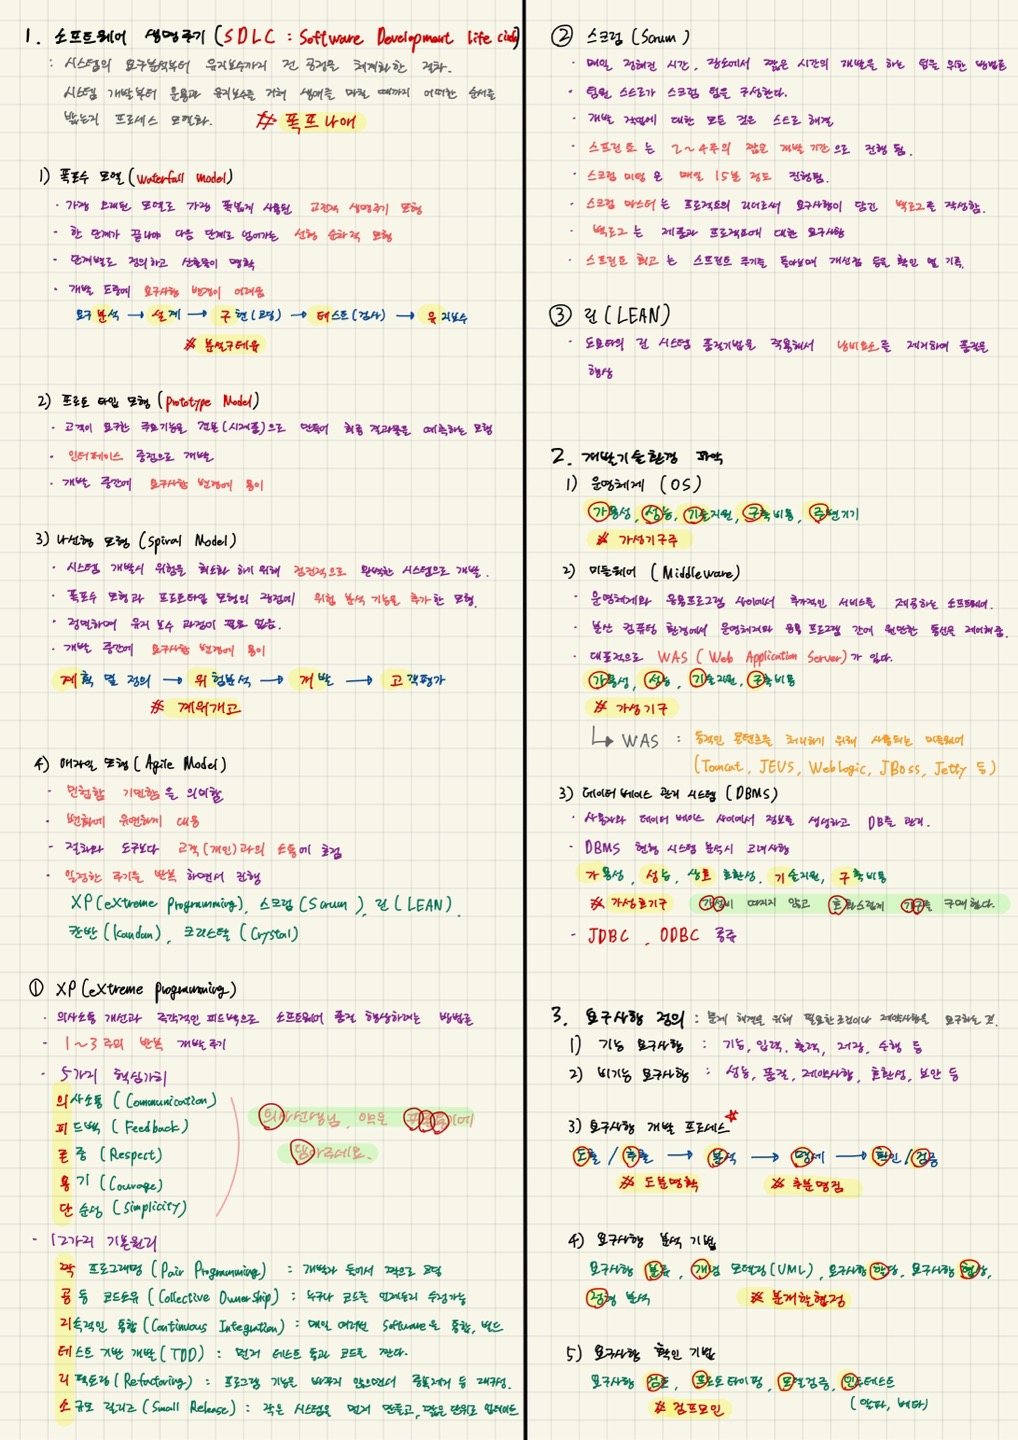 1. 소프트웨어 생명주기 (SDLC : Software Development Life Cycle)
: 시스템의 요구분석부터 유지보수까지 전 공정을 체계화한 절차.
시스템 개발부터 운용과 유지보수를 거쳐 생애를 마칠 때까지 어떠한 순서를
밟는지 프로세스 모형화. ※ 폭프나애
1) 폭포수 모델 (Waterfall Model)
· 가장 오래된 모델로 가장 폭넓게 사용된 고전적 생명주기 모형
· 한 단계가 끝나야 다음 단계로 넘어가는 선형 순차적 모형
· 단계별로 정의하고 산출물이 명확
· 개발 도중에 요구사항 변경이 어려움
요구분석 → 설계 → 구현(코딩) → 테스트(검사) → 유지보수
※ 분설구테유
2) 프로토 타입 모형 (Prototype Model)
· 고객이 요구한 주요기능을 견본(시제품)으로 만들어 최종 결과물을 예측하는 모형
· 인터페이스 중심으로 개발
· 개발 중간에 요구사항 변경에 용이
3) 나선형 모형 (Spiral Model)
· 시스템 개발시 위험을 최소화 하기 위해 점진적으로 완벽한 시스템으로 개발.
· 폭포수 모형과 프로토타입 모형의 장점에 위험 분석 기능을 추가한 모형.
· 정밀하며 유지 보수 과정이 필요 없음.
· 개발 중간에 요구사항 변경에 용이
계획 및 정의 → 위험분석 → 개발 → 고객평가
※ 계위개고
4) 애자일 모형 (Agile Model)
- 민첩함 기민함을 의미함
· 변화에 유연하게 대응
· 절차와 도구보다 고객(개인)과의 소통에 초점
· 일정한 주기를 반복 하면서 진행
XP(eXtreme Programming), 스크럼(Scrum), 린(LEAN).
칸반(Kandan), 크리스탈(Crystal)
① XP(eXtreme Programming)
· 의사소통 개선과 즉각적인 피드백으로 소프트웨어 품질 향상하려는 방법론
· 1~3주의 반복 개발주기
· 5가지 핵심가치
의사소통 (Communication)
피드백 (Feedback)
존중 (Respect)
용기 (Courage)
단순성 (Simplicity)
의사선생님, 약은
담아주세요.
- 12가지 기본원리
짝 프로그래밍 (Pair Programming) : 개발자 둘이서 짝으로 코딩
공동 코드소유 (Collective Ownership) : 누구나 코드를 언제든지 수정가능
지속적인 통합 (Continuous Integration) : 매일 여러번 Software를 통합, 빌드
테스트 기반 개발 (TDD) : 먼저 테스트 통과 코드를 짠다.
리팩토링 (Refactoring) : 프로그램 기능은 바꾸지 않으면서 중복제거 등 재구성.
소규모 릴리즈 (Small Release) : 작은 시스템을 먼저 만들고, 짧은 단위로 업데이트
② 스크럼 (Scrum)
· 매일 정해진 시간, 장소에서 짧은 시간의 개발을 하는 팀을 위한 방법론
· 팀원 스스로가 스크럼 팀을 구성한다.
· 개발 작업에 대한 모든 것은 스스로 해결
· 스프린트는 2~4주의 짧은 개발 기간으로 진행 됨.
· 스크럼 미팅은 매일 15분 정도 진행됨.
· 스크럼 마스터는 프로젝트의 리더로서 요구사항이 담긴 백로그를 작성함.
· 백로그는 제품과 프로젝트에 대한 요구사항
· 스프린트 회고는 스프린트 주기를 돌아보며 개선점 등을 확인 및 기록.
③ 린 (LEAN)
· 도요타의 린 시스템 품질기법을 적용해서 낭비요소를 제거하여 품질을
향상
2. 개발기술환경 파악
1) 운영체제 (OS)
가용성, 성능, 기술지원, 구축비용, 주변기기
※ 가성기구주
2) 미들웨어 (Middleware)
· 운영체제와 응용프로그램 사이에서 추가적인 서비스를 제공하는 소프트웨어.
· 분산 컴퓨팅 환경에서 운영체제와 응용 프로그램 간에 원만한 통신을 제어해줌.
· 대표적으로 WAS (Web Application Server)가 있다.
가용성, 성능, 기술지원, 구축비용
※ 가성기구
↳ WAS : 동적인 콘텐츠를 처리하기 위해 사용되는 미들웨어
(Tomcat, JEUS, Weblogic, JBoss, Jetty 등)
3) 데이터 베이스 관리 시스템 (DBMS)
· 사용자와 데이터 베이스 사이에서 정보를 생성하고 DB를 관리.
· DBMS 현행 시스템 분석시 고려사항
가용성, 성능, 상호 호환성, 기술지원, 구축비용
※ 가성호기구 가성비 따지지 않고 호환스럽게 기구를 구매한다.
- JDBC, ODBC 종류
3. 요구사항 정의 : 문제 해결을 위해 필요한 조건이나 제약사항을 요구하는 것.
1) 기능 요구사항 : 기능, 입력, 출력, 저장, 수행 등
2) 비기능 요구사항 : 성능, 품질, 제약사항, 호환성, 보안 등
3) 요구사항 개발 프로세스 ☆
도출 / 추출 → 분석 → 명세 → 확인 / 검증
※ 도분명확 ※ 추분명검
4) 요구사항 분석 기법
요구사항 분류, 개념 모델링(UML), 요구사항 할당, 요구사항 협상,
정형 분석 ※ 분개할협정
5) 요구사항 확인 기법
요구사항 검토, 프로토타이핑, 모델검증, 인수테스트
※ 검프모인 (알파, 베타)